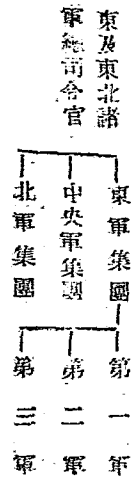 東及東北諸
軍總司令官
東軍集團
中央軍集團
北軍集團
第一軍
第二軍
第三軍